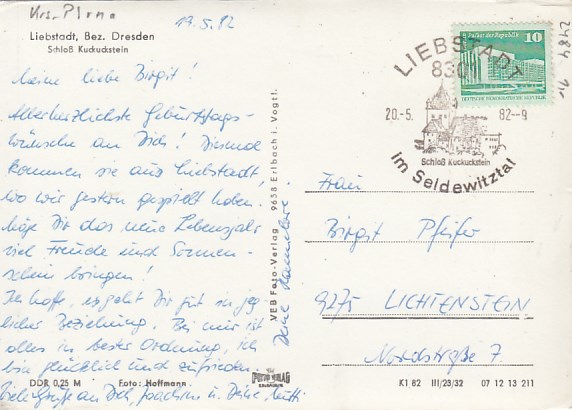 Krs. Pirna
19.5.82
Liebstadt, Bez. Dresden
Schloß Kuckuckstein
Meine liebe Birgit!
Allerherzlichste Geburtstags-
wünsche an Dich! Diesmal
kommen sie aus Liebstadt,
wo wir gestern gespielt haben.
Möge Dir das neue Lebensjahr
viel Freude und Sonnen-
schein bringen!
Ich hoffe, es geht Dir gut in jeg-
licher Beziehung. Bei mir ist
alles in bester Ordnung, ich
bin glücklich und zufrieden.
Viele Grüße an Dich, Joachim u. Deine Mutti
Deine Hannelore
DDR 0,25 M
Foto: Hoffmann
VEB Foto-Verlag · 9658 Erlbach i. Vogtl.
LIEBSTADT
8301
20.-5. 82-9
Schloß Kuckuckstein
im Seidewitztal
Palast der Republik
10
DEUTSCHE DEMOKRATISCHE REPUBLIK
2484
Frau
Birgit Pfeifer
9275 LICHTENSTEIN
Nordstraße 7
K1 82 III/23/32 07 12 13 211